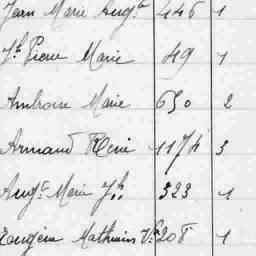 Jean Marie Aug^te 446 1
J^h Pierre Marie 49 1
Ambroise Marie 630 2
Armand René 1174 3
Aug^te Marie J^h 323 1
Eugène Mathurin V^or 208 1